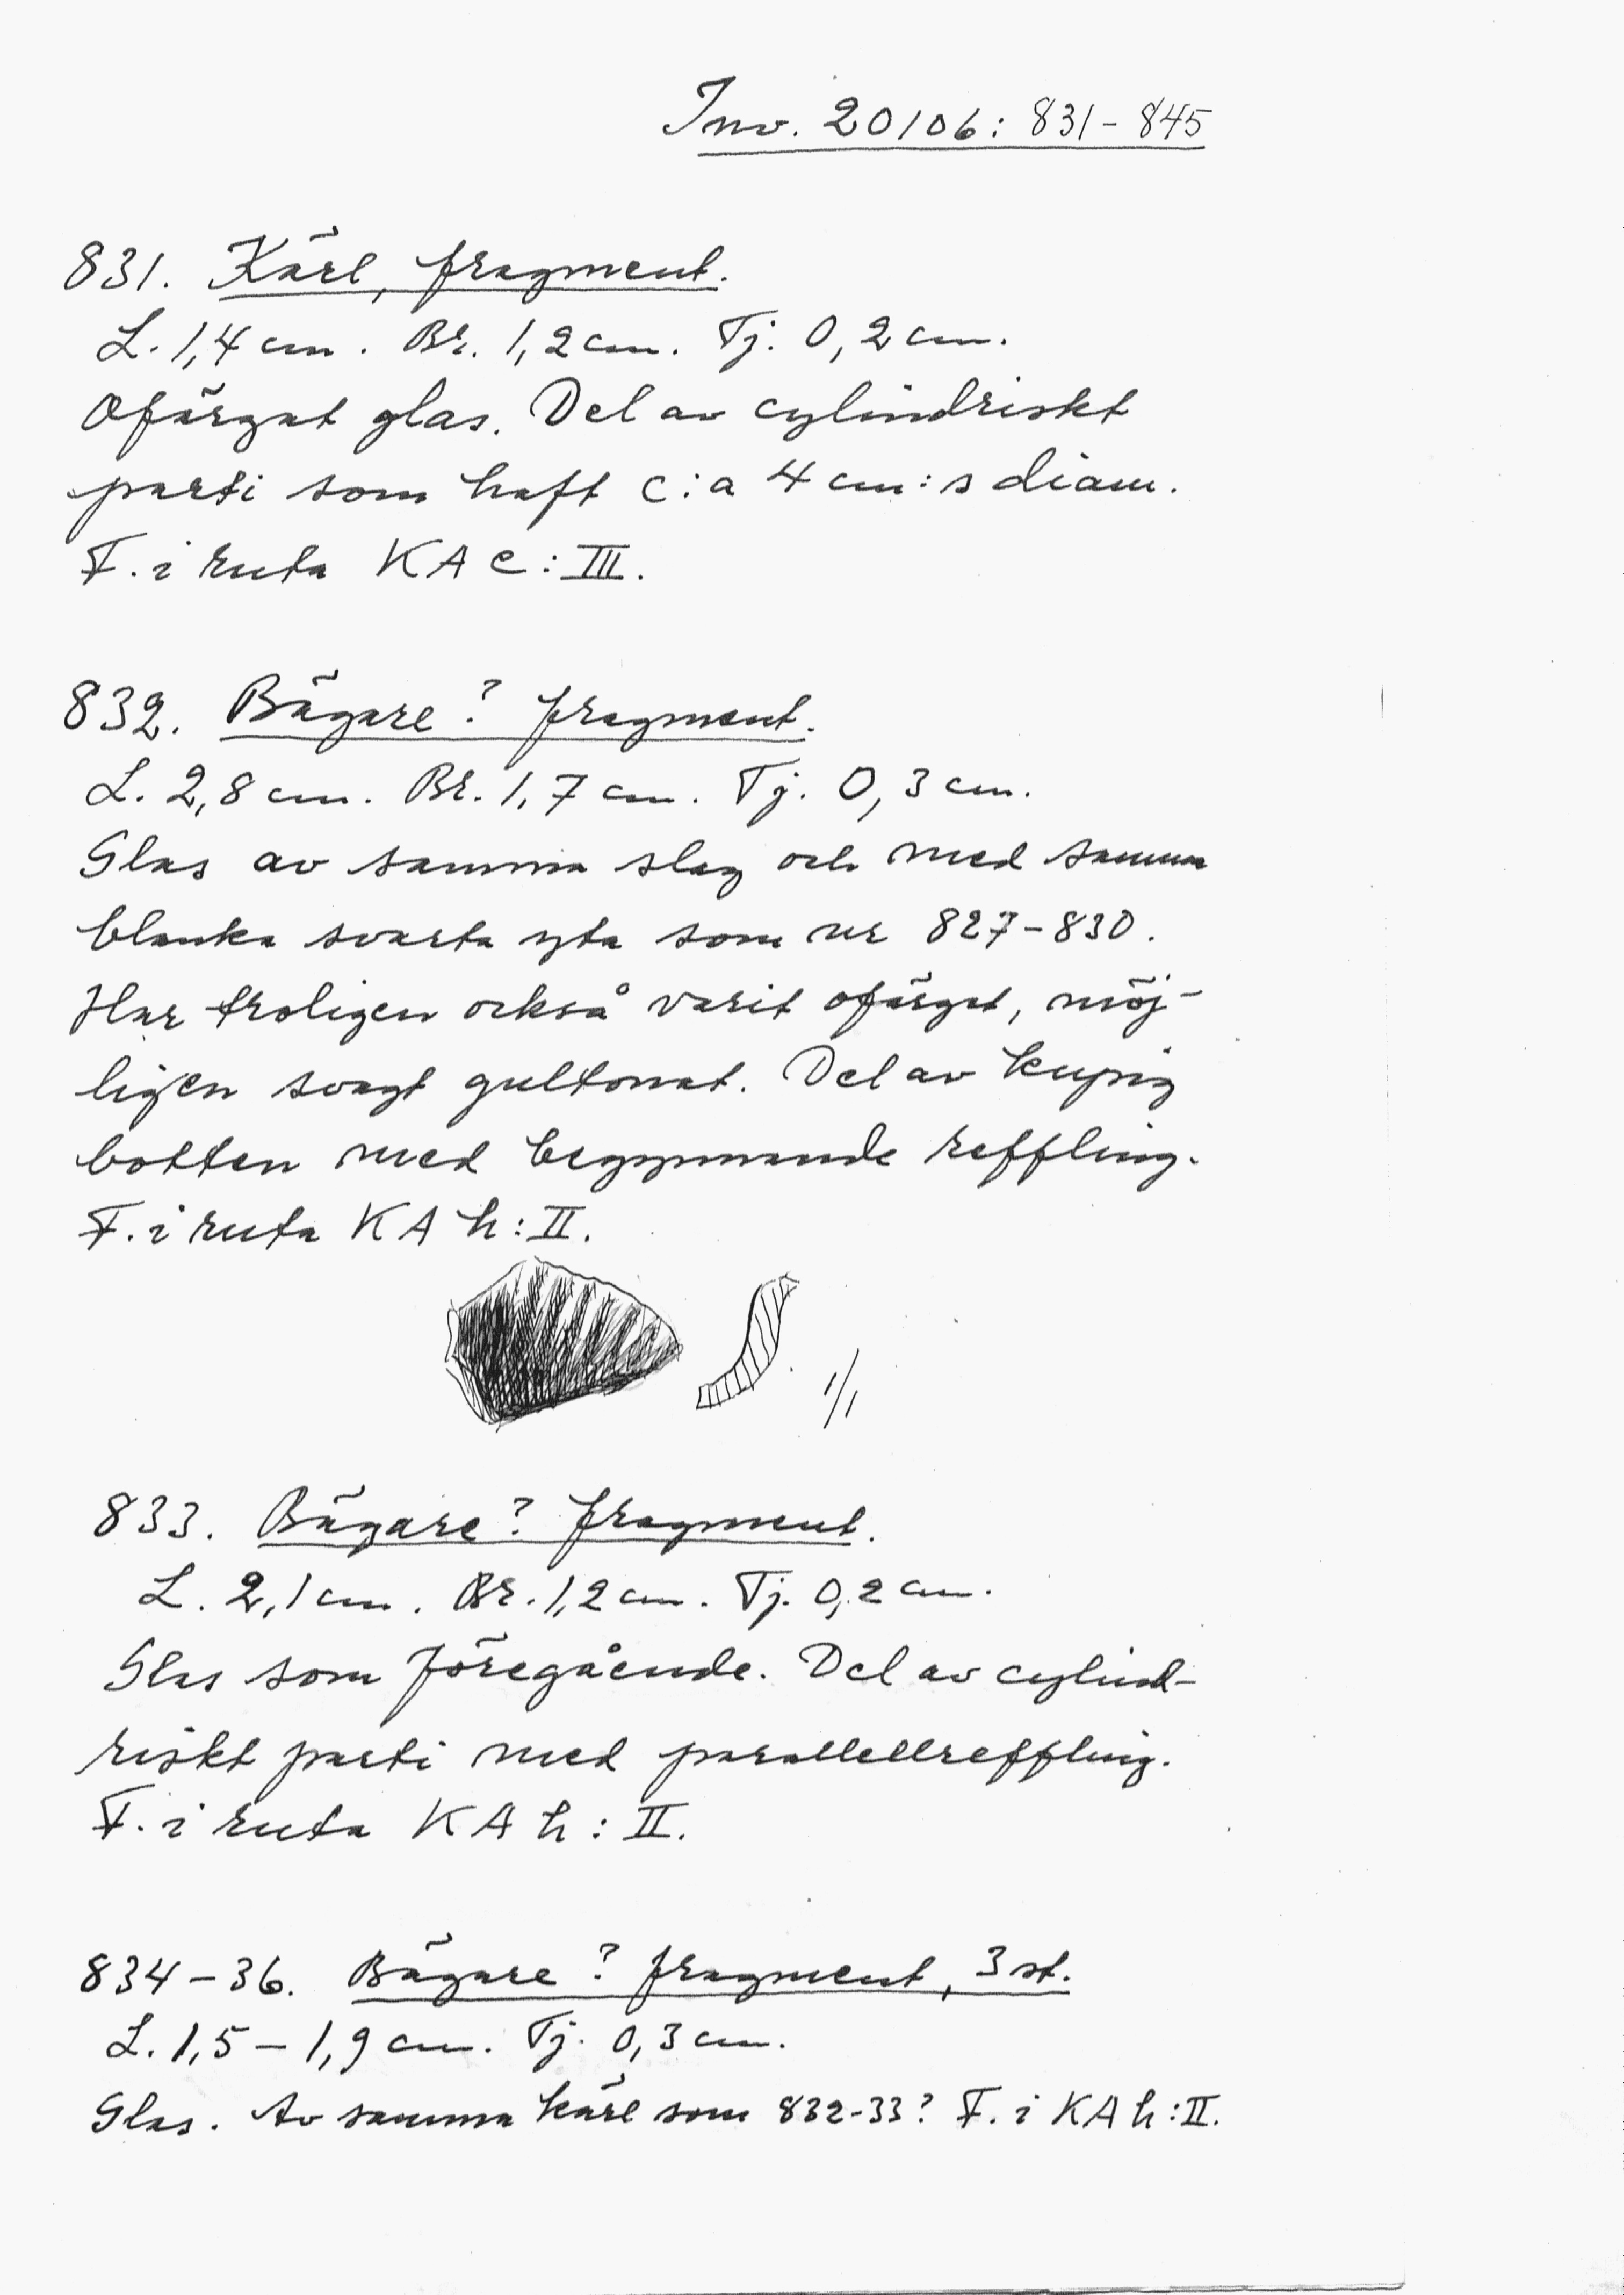 Inv. 20106: 831-845
831. Kärl, fragment.
L. 1,4 cm. Br. 1,2 cm. Tj. 0,2 cm.
Ofärgat glas. Del av cylindriskt
parti som haft c:a 4 cm:s diam.
F. i ruta KA e:III.
832. Bägare? fragment.
L. 2,8 cm. Br. 1,7 cm. Tj. 0,3 cm.
Glas av samma slag och med samma
blanka svarta yta som nr 827-830.
Har troligen också varit ofärgat, möj-
ligen svagt gultonat. Del av kupig
botten med begynnande reffling.
F. i ruta KA h:II.
1/1
833. Bägare? fragment.
L. 2,1 cm. Br. 1,2 cm. Tj. 0,2 cm.
Glas som föregående. Del av cylind-
riskt parti med parallellreffling.
F. i ruta KA h:II.
834-36. Bägare? fragment, 3 st.
L. 1,5-1,9 cm. Tj. 0,3 cm.
Glas. Av samma kärl som 832-33? F. i KA h:II.